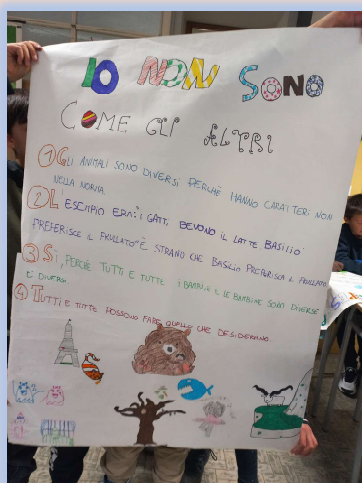 IO NON SONO
COME GLI ALTRI
① GLI ANIMALI SONO DIVERSI PERCHÈ HANNO CARATTERI NON
NELLA NORMA.
② L ESEMPIO ERA: I GATTI BEVONO IL LATTE BASILIO
PREFERISCE IL FRULLATO" È STRANO CHE BASILIO PREFERISCA IL FRULLATO
③ SI, PERCHÈ TUTTI E TUTTE I BAMBINI E LE BAMBINE SONO DIVERSE
E DIVERSI
④ TUTTI E TUTTE POSSONO FARE QUELLO CHE DESIDERANO.